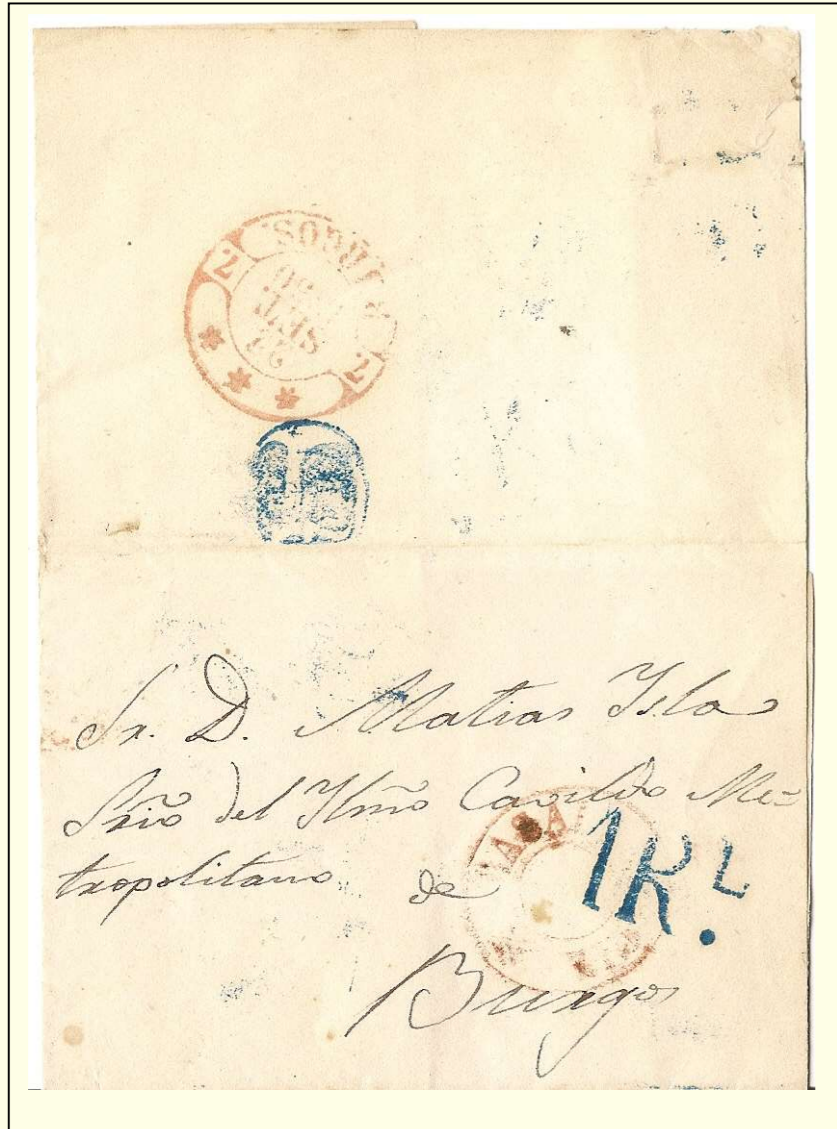 BURGOS.
2 2
22
SET.
1850
Sr. D. Matias Isla
Srio del Ylmo Cavildo Me=
tropolitano de
Burgos
1R.L